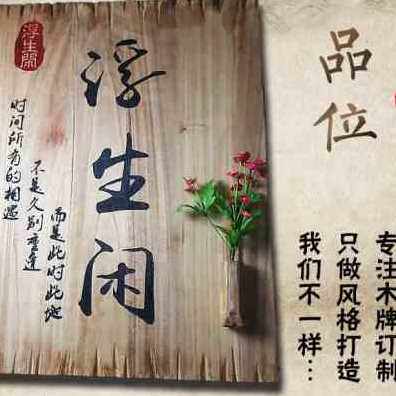 浮生閑
浮生闲
时间所有的相遇
不是久别重逢
而是此时此地
品位
专注木牌订制
只做风格打造
我们不一样…